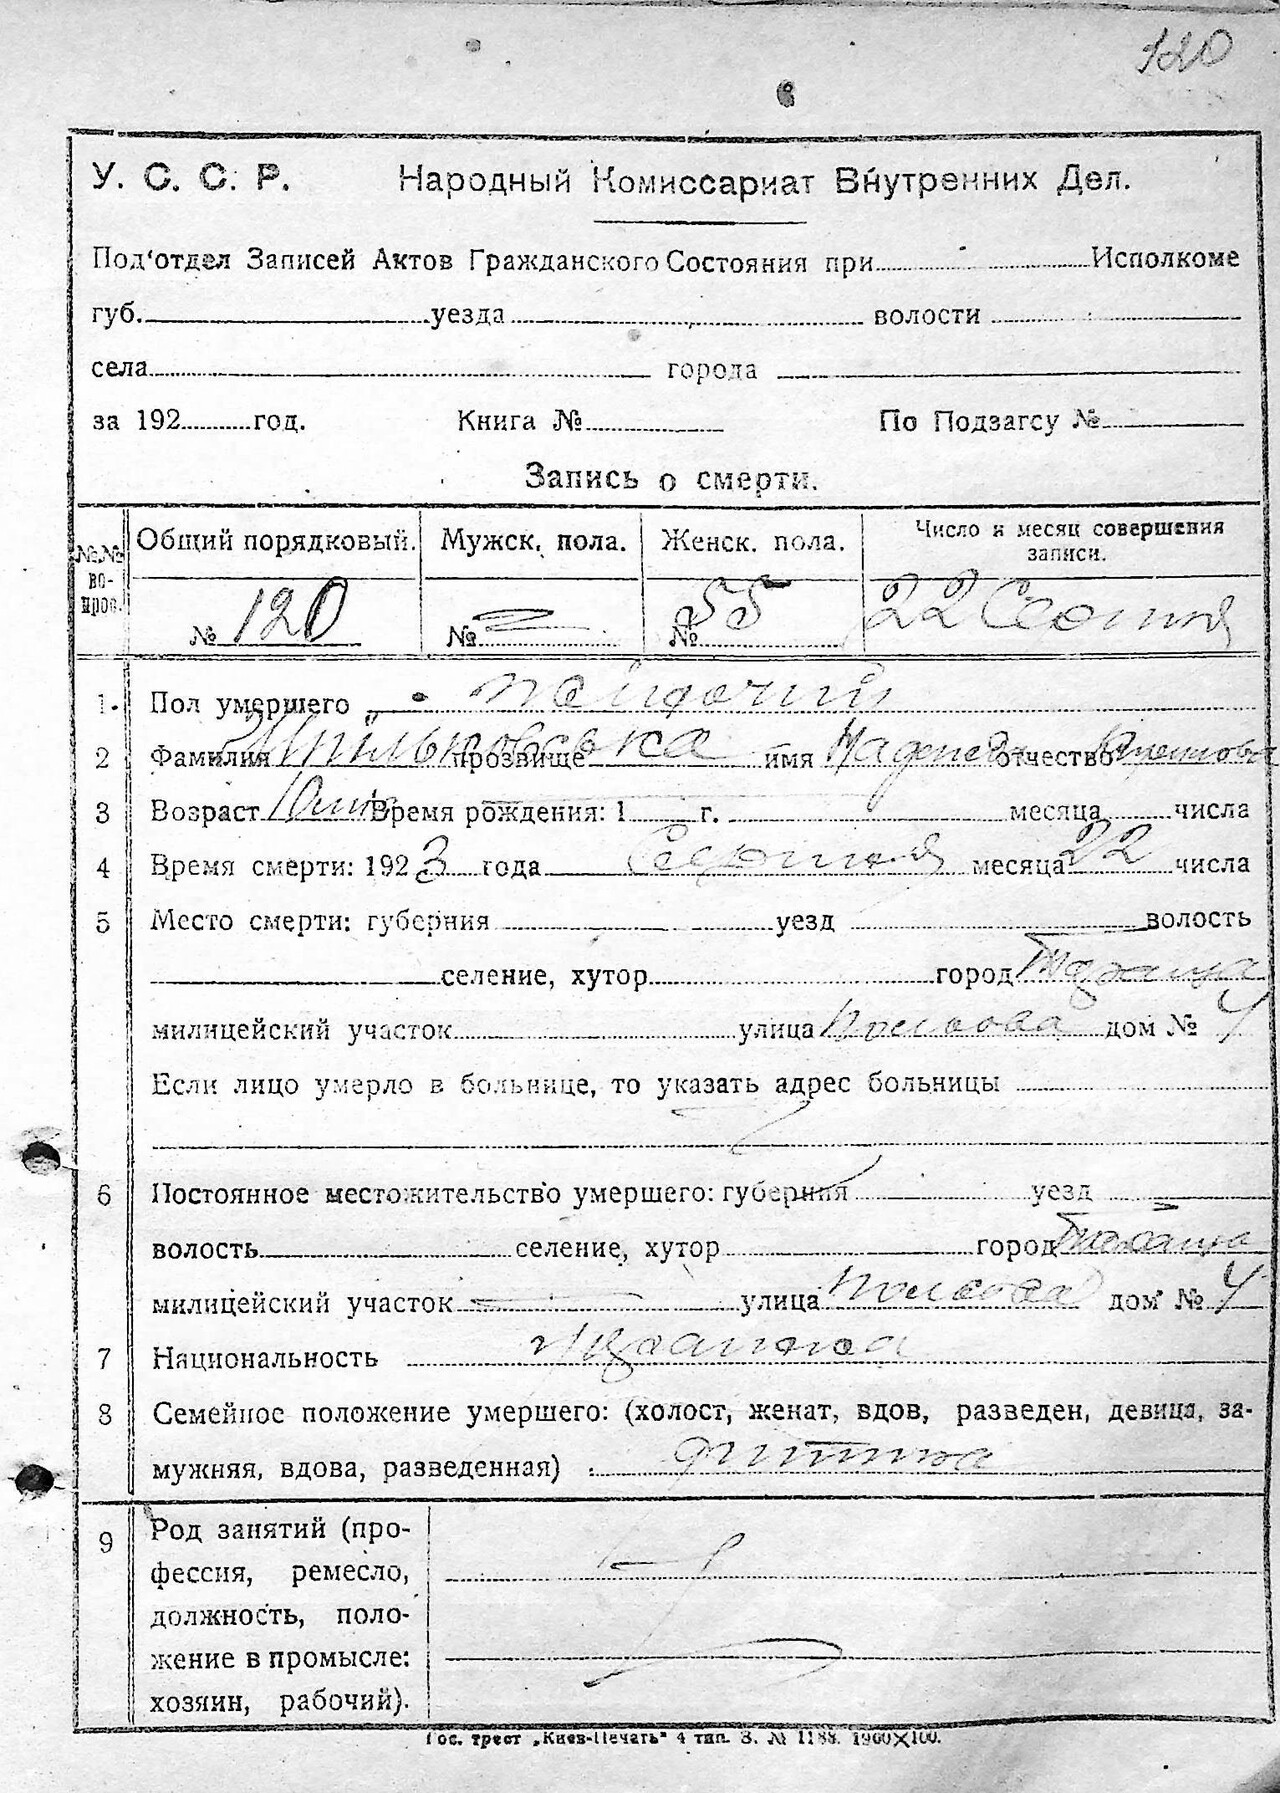 120
У. С. С. Р. Народный Комиссариат Внутренних Дел.
Под'отдел Записей Актов Гражданского Состояния при Исполкоме
губ. уезда волости
села города
за 192 год. Книга № По Подзагсу №
Запись о смерти.
№№ во-прос. Общий порядковый. Мужск. пола. Женск. пола. Число и месяц совершения записи.
№ 120 № № 55 22 Серпня
1. Пол умершего жіночий
2 Фамилия прозвище имя отчество
3 Возраст Время рождения: 1 г. месяца числа
4 Время смерти: 1923 года Серпня месяца 22 числа
5 Место смерти: губерния уезд волость
селение, хутор город Тараща
милицейский участок улица дом № 4
Если лицо умерло в больнице, то указать адрес больницы
6 Постоянное местожительство умершего: губерния уезд
волость селение, хутор город Тараща
милицейский участок улица дом № 4
7 Национальность
8 Семейное положение умершего: (холост, женат, вдов, разведен, девица, за-
мужняя, вдова, разведенная) дитина
9 Род занятий (про-
фессия, ремесло,
должность, поло-
жение в промысле:
хозяин, рабочий).
Гос. трест „Киев-Печать" 4 тип. З. № 1188. 1900×100.